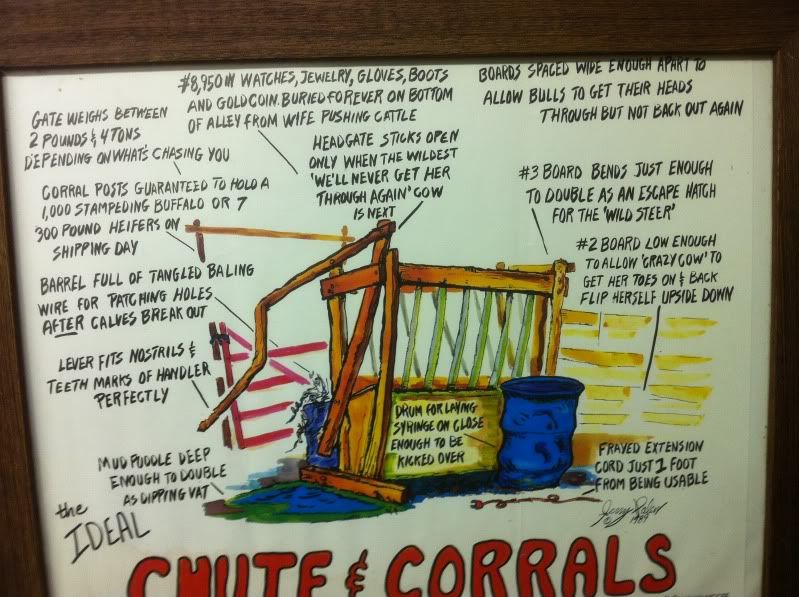 #8,950 IN WATCHES, JEWELRY, GLOVES, BOOTS
AND GOLD COIN. BURIED FOREVER ON BOTTOM
OF ALLEY FROM WIFE PUSHING CATTLE
BOARDS SPACED WIDE ENOUGH APART TO
ALLOW BULLS TO GET THEIR HEADS
THROUGH BUT NOT BACK OUT AGAIN
GATE WEIGHS BETWEEN
2 POUNDS & 4 TONS
DEPENDING ON WHAT'S CHASING YOU
HEADGATE STICKS OPEN
ONLY WHEN THE WILDEST
'WE'LL NEVER GET HER
THROUGH AGAIN' COW
IS NEXT
#3 BOARD BENDS JUST ENOUGH
TO DOUBLE AS AN ESCAPE HATCH
FOR THE 'WILD STEER'
CORRAL POSTS GUARANTEED TO HOLD A
1,000 STAMPEDING BUFFALO OR 7
300 POUND HEIFERS ON
SHIPPING DAY
#2 BOARD LOW ENOUGH
TO ALLOW 'CRAZY COW' TO
GET HER TOES ON & BACK
FLIP HERSELF UPSIDE DOWN
BARREL FULL OF TANGLED BALING
WIRE FOR PATCHING HOLES
AFTER CALVES BREAK OUT
LEVER FITS NOSTRILS &
TEETH MARKS OF HANDLER
PERFECTLY
DRUM FOR LAYING
SYRINGE ON CLOSE
ENOUGH TO BE
KICKED OVER
MUD PUDDLE DEEP
ENOUGH TO DOUBLE
AS DIPPING VAT
FRAYED EXTENSION
CORD JUST 1 FOOT
FROM BEING USABLE
© 1989
the
IDEAL
CHUTE & CORRALS